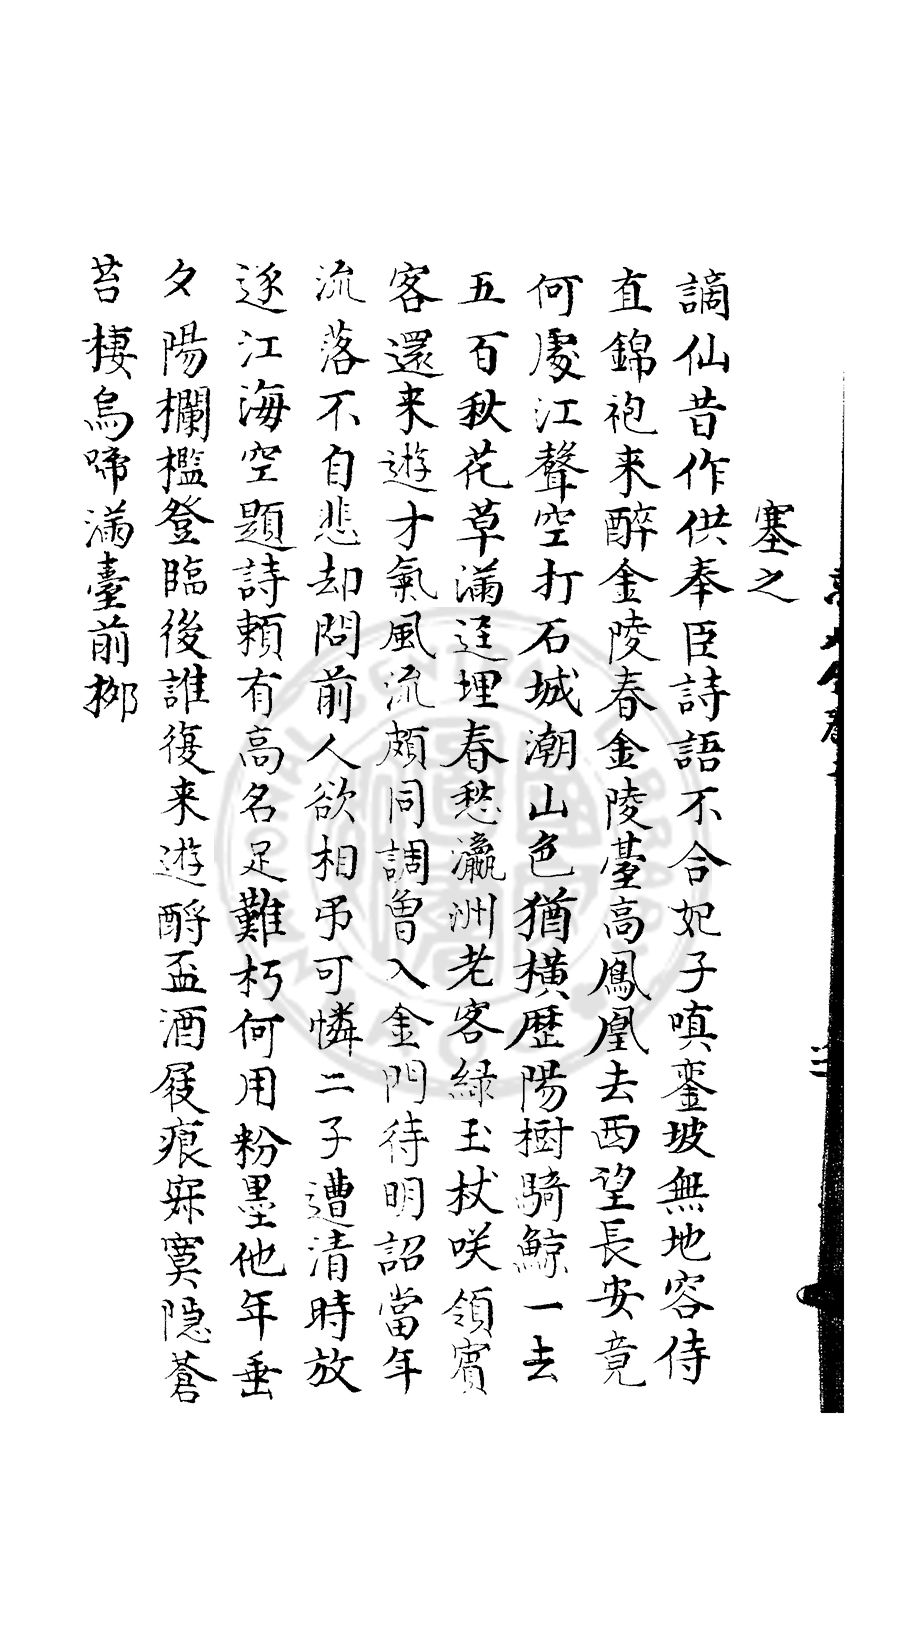 塞之
謫仙昔作供奉臣詩語不合妃子嗔鑾坡無地容侍
直錦袍来醉金陵春金陵臺高鳳凰去西望長安竟
何處江聲空打石城潮山色猶橫歷陽樹騎鯨一去
五百秋花草滿逕埋春愁瀛洲老客綠玉杖咲領賓
客還来遊才氣風流頗同調曽入金門待明詔當年
流落不自悲却問前人欲相弔可憐二子遭清時放
逐江海空題詩賴有高名足難朽何用粉墨他年垂
夕陽欄檻登臨後誰復来遊酹盃酒屐痕寂寞隐蒼
苔棲烏啼滿臺前栁